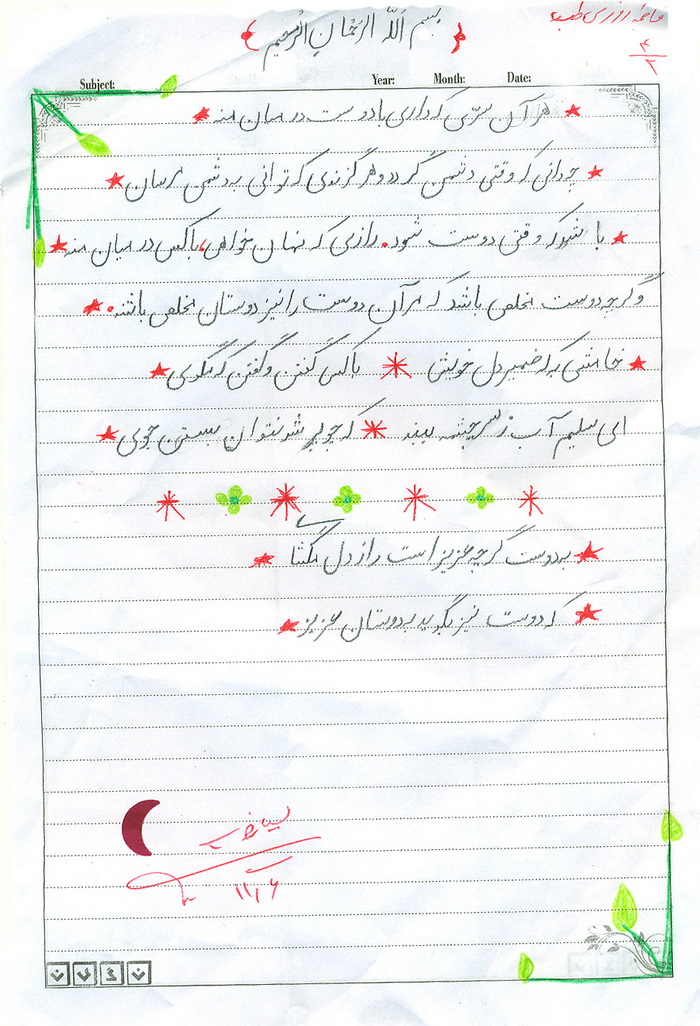 بسم الله الرحمان الرحیم
فاطمه روزی طلب
۴/۲
Subject: Year: Month: Date:
هر آن سرّی که داری با دوست در میان منه
چه دانی که وقتی دشمن گردد و هر گزندی که توانی به دشمن مرسان
باشد که وقتی دوست شود. رازی که نهان خواهی، با کس در میان منه
وگرچه دوست مخلص باشد که مر آن دوست را نیز دوستان مخلص باشند.
خامشی به که ضمیر دل خویش با کسی گفتن و گفتن که مگوی
ای سلیم آب ز سرچشمه ببند که چو پر شد نتوان بستن جوی
به دوست گرچه عزیز است راز دل مگشا
که دوست نیز بگوید به دوستان عزیز
بسیار خوب